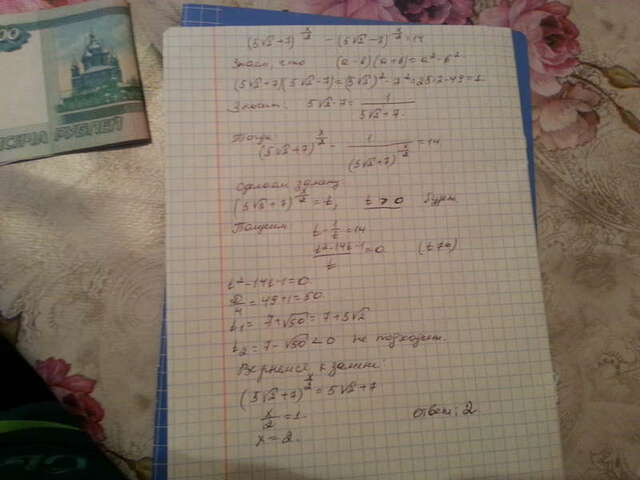 (5√2+7)^(x/2) - (5√2-7)^(x/2) = 14
Знаем, что (a-b)(a+b)=a²-b².
(5√2+7)(5√2-7)=(5√2)²-7²=25·2-49=1.
Значит: 5√2-7 = 1/(5√2+7).
Тогда: (5√2+7)^(x/2) - 1/(5√2+7)^(x/2) = 14
сделаем замену
(5√2+7)^(x/2) = t, t > 0
Получим t - 1/t = 14
(t²-14t-1)/t = 0
t²-14t-1=0
D/4 = 49+1=50
t₁ = 7+√50 = 7+5√2
t₂ = 7-√50 < 0 не подходит.
Вернемся к замене:
(5√2+7)^(x/2) = 5√2+7
x/2 = 1.
x = 2.
ответ: 2